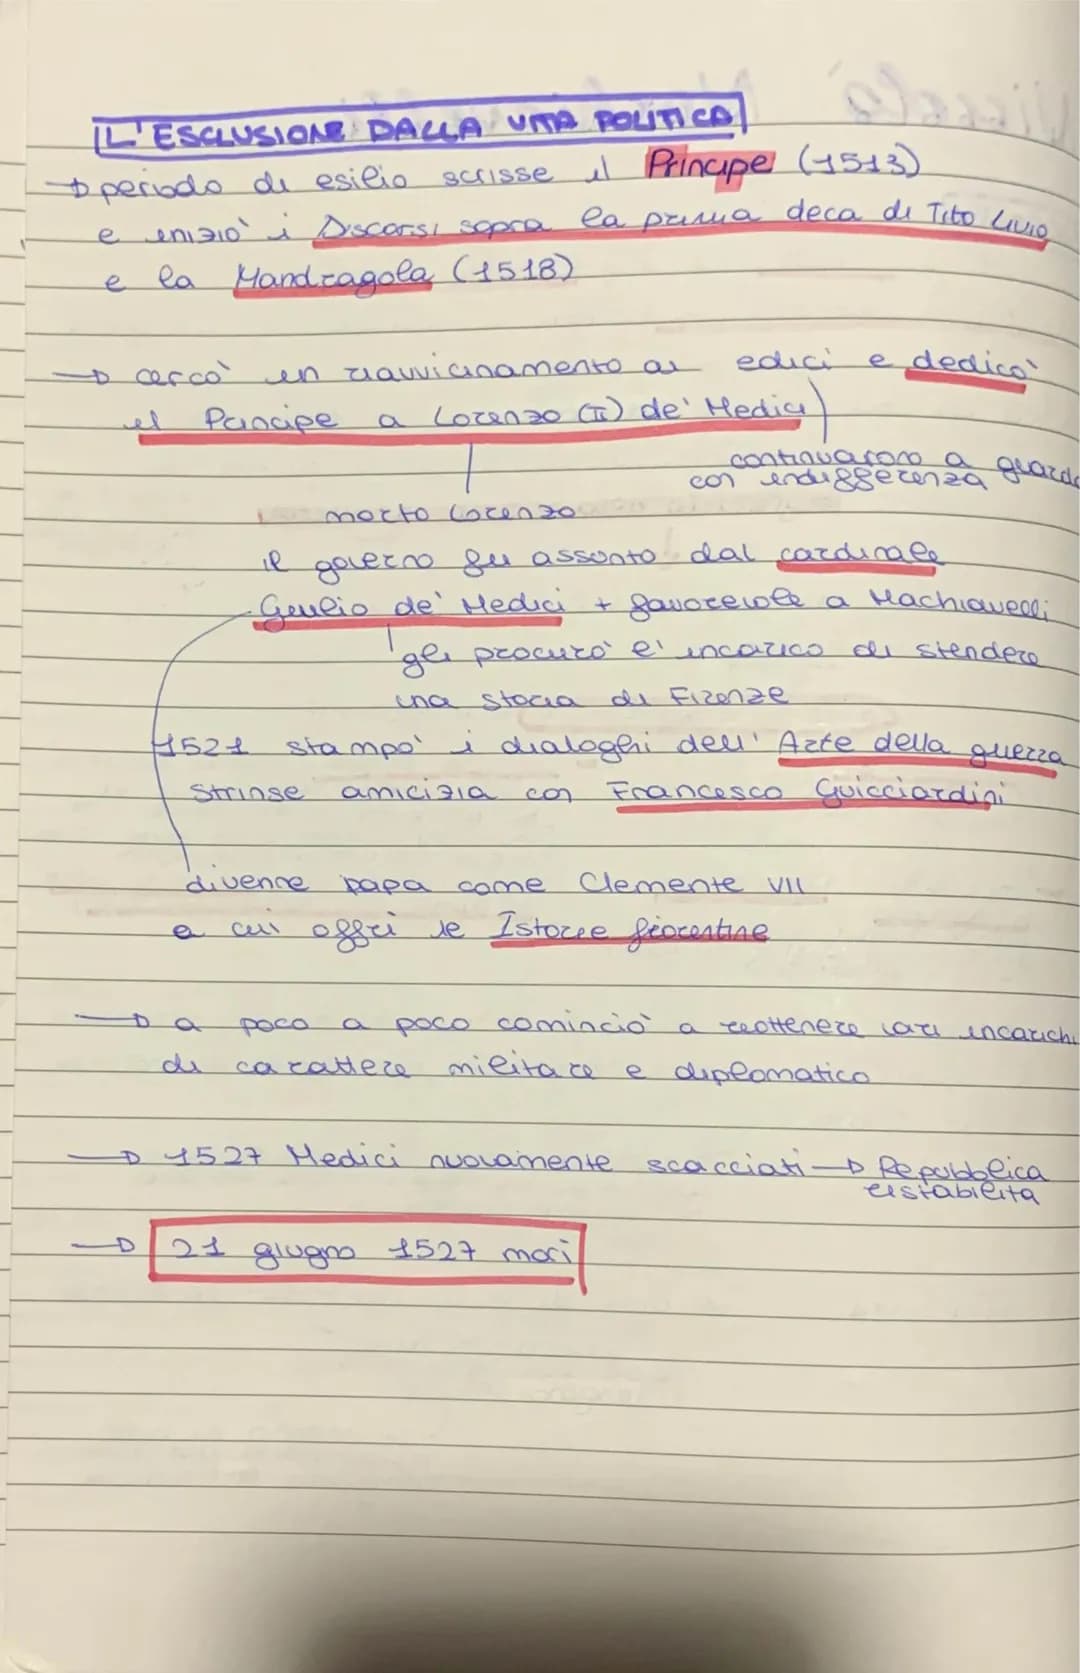 L'ESCLUSIONE DALLA VITA POLITICA
→ periodo di esilio scrisse il Principe (1513)
e iniziò i Discorsi sopra la prima deca di Tito Livio
e la Mandragola (1518)
→ cercò un riavvicinamento ai edici e dedicò
il Principe a Lorenzo (II) de' Medici
continuarono a guarda
con indifferenza
morto Lorenzo
il governo fu assunto dal cardinale
Giulio de' Medici + favorevole a Machiavelli
gli procurò l'incarico di stendere
una storia di Firenze
1521 stampò i dialoghi dell' Arte della guerra
strinse amicizia con Francesco Guicciardini
divenne papa come Clemente VII
a cui offrì le Istorie fiorentine
→ a poco a poco cominciò a riottenere vari incarichi
di carattere militare e diplomatico
→ 1527 Medici nuovamente scacciati → Repubblica
ristabilita
→ 21 giugno 1527 morì